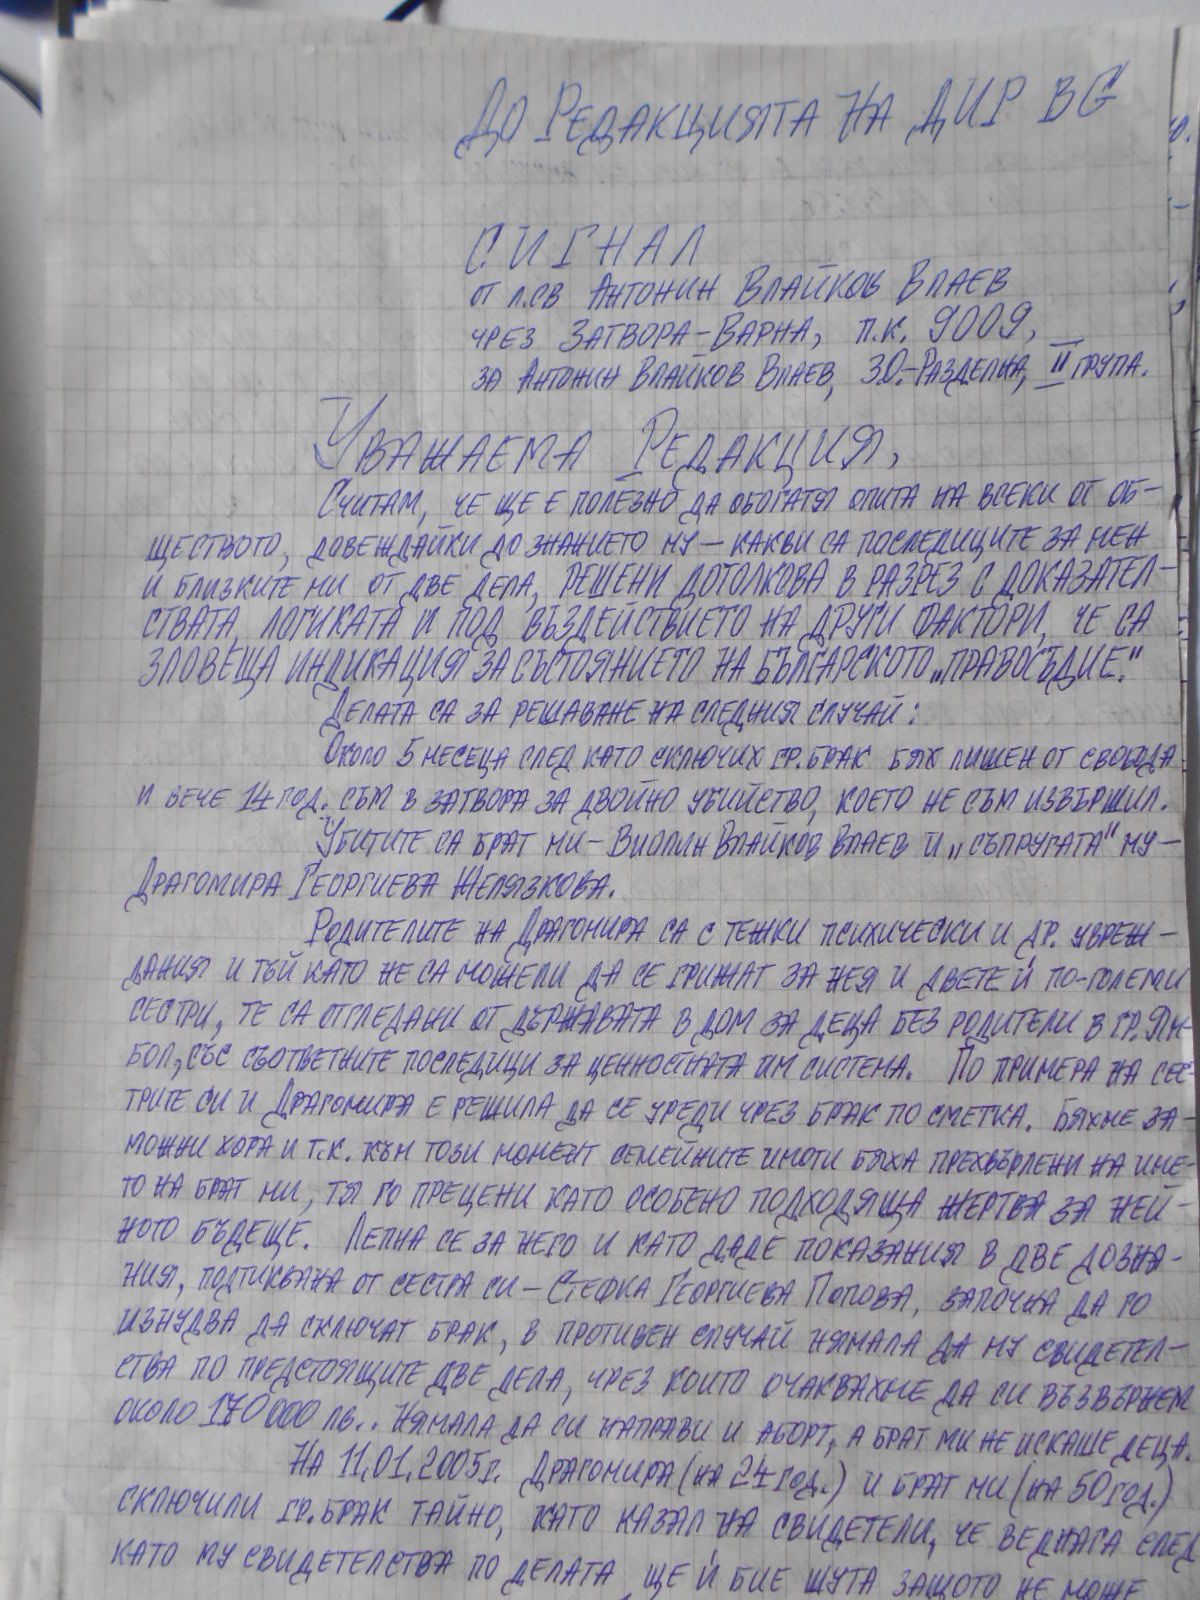 До Редакцията на ДИР BG
СИГНАЛ
от л.св Антонин Влайков Влаев
чрез Затвора-Варна, п.к. 9009,
за Антонин Влайков Влаев, З.О.-Разделна, II група.
Уважаема Редакция,
Считам, че ще е полезно да обогатя опита на всеки от об-
ществото, довеждайки до знанието му – какви са последиците за мен
и близките ми от две дела, решени дотолкова в разрез с доказател-
ствата, логиката и под въздействието на други фактори, че са
зловеща индикация за състоянието на българското „правосъдие".
Делата са за решаване на следния случай:
Около 5 месеца след като сключих гр.брак бях лишен от свобода
и вече 14 год. съм в затвора за двойно убийство, което не съм извършил.
Убитите са брат ми – Виолин Влайков Влаев и „съпругата" му –
Драгомира Георгиева Желязкова.
Родителите на Драгомира са с тежки психически и др. увреж-
дания и тъй като не са можели да се грижат за нея и двете й по-големи
сестри, те са отгледани от държавата в дом за деца без родители в гр. Ям-
бол, със съответните последици за ценностната им система. По примера на сес-
трите си и Драгомира е решила да се уреди чрез брак по сметка. Бяхме за-
можни хора и т.к. към този момент семейните имоти бяха прехвърлени на име-
то на брат ми, тя го прецени като особено подходяща жертва за ней-
ното бъдеще. Лепна се за него и като даде показания в две дозна-
ния, подтиквана от сестра си – Стефка Георгиева Попова, започна да го
изнудва да сключат брак, в противен случай нямала да му свидетел-
ства по предстоящите две дела, чрез които очаквахме да си възвърнем
около 170 000 лв.. Нямала да си направи и аборт, а брат ми не искаше деца.
На 11.01.2005г. Драгомира (на 24 год.) и брат ми (на 50 год.)
сключили гр.брак тайно, като казал на свидетели, че веднага след
като му свидетелства по делата, ще й бие шута защото не може